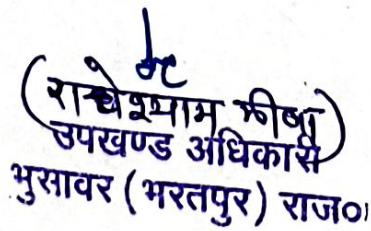 (राधेश्याम मीणा)
उपखण्ड अधिकारी
भुसावर (भरतपुर) राज०